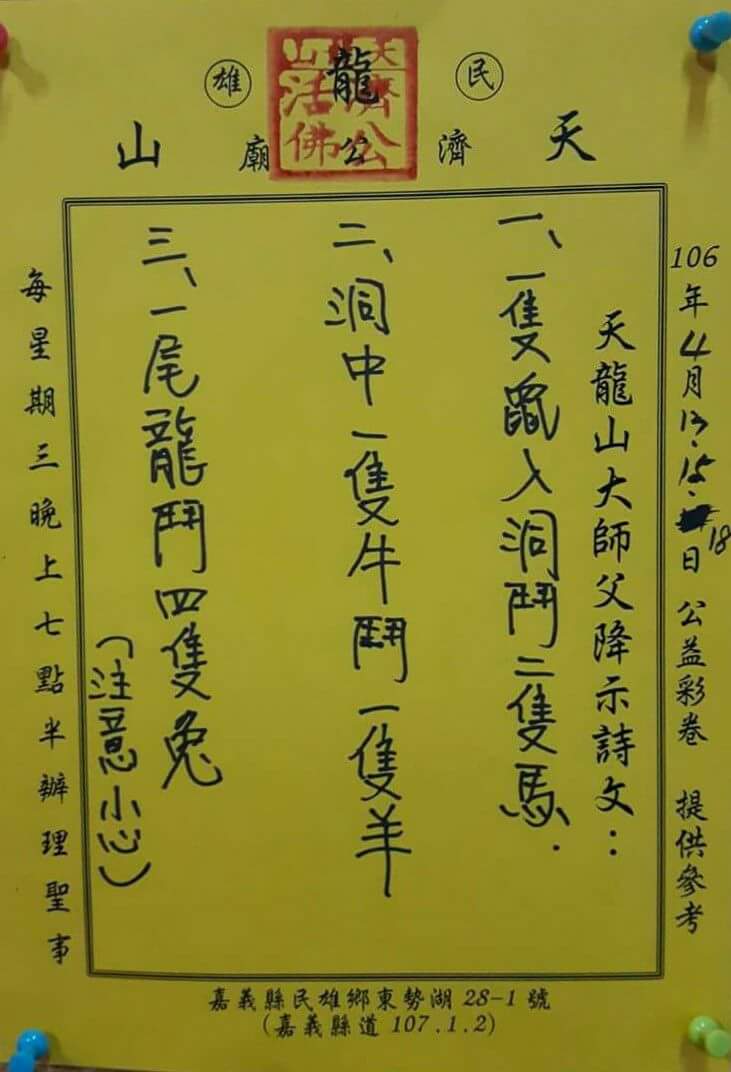 民雄
天龍山
濟公廟
濟公活佛
106年4月13.15.18日 公益彩卷 提供參考
天龍山大師父降示詩文：
一、一隻鼠入洞鬥二隻馬.
二、洞中一隻牛鬥一隻羊
三、一尾龍鬥四隻兔
(注意小心)
每星期三晚上七點半辦理聖事
嘉義縣民雄鄉東勢湖28-1號
(嘉義縣道107.1.2)